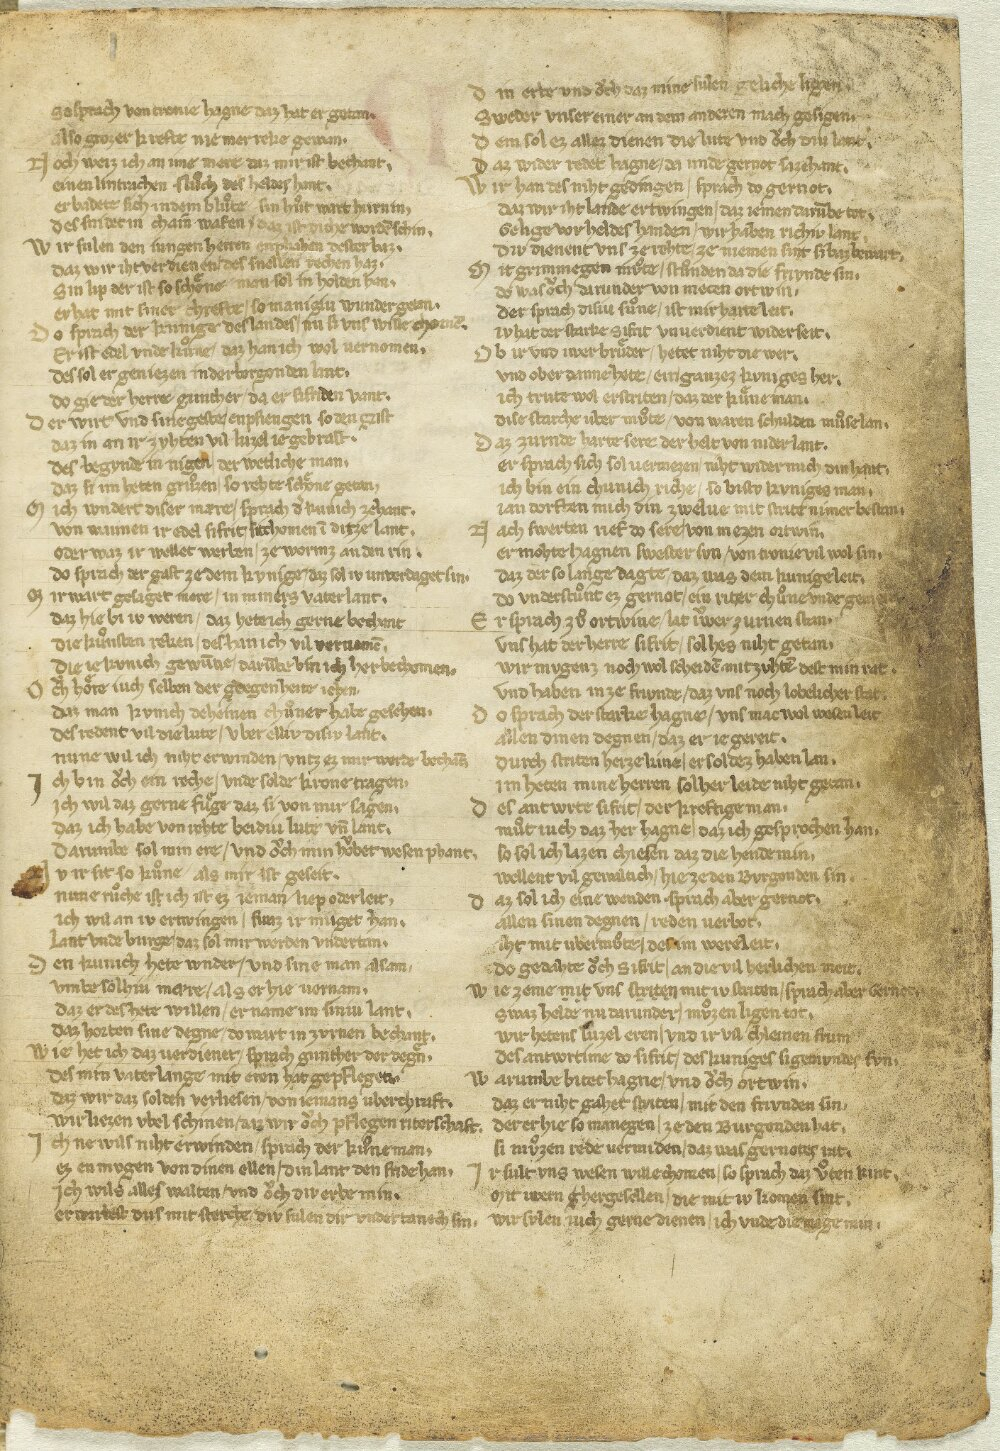 So sprach von tronie hagne daz hat er getan.
also grozer krefte nie mer reke gewan.
Noch weiz ich an ime mere daz mir ist bechant.
einen lintrachen sluͦch des heldes hant.
er badete sich in dem bluͦte / sin huͦt wart hurnin.
des snidet in chain wafen / daz ist diche worden schin.
Wir sulen den iungen herren enphahen dester baz.
daz wir iht verdienen / des snellen rechen haz.
Sin lip der ist so schoͤne man sol in holden han.
er hat mit siner chrefte / so manigiu wunder getan.
Do sprach der kunige des landes / nu si uns wille chomē.
Er ist edel unde kuͦne / daz han ich wol uernomen.
des sol er geniezen in der borgonden lant.
do gie der herre gunther / da er sifriden vant.
Der wirt und sine geste / enpfiengen so den gast
daz in an ir zvhten vil luzel ie gebrast.
des begvnde in nigen / der wetliche man.
daz si im heten gruͦzen / so rehte schoͤne getan.
Mich wndert diser mære / sprach d kunich zehant.
von wannen ir edel sifrit / sit chomen ī ditze lant.
oder waz ir wellet werben / ze wormz an den rin.
do sprach der gast ze dem kvnige / daz sol iv unverdaget sin.
Mir wart gesaget mære / in mineys vater lant.
daz hie bi iv weren / daz hete ich gerne bechant
die kuͦnsten reken / des han ich vil vernomē.
die ie kvnich gewūne / darumbe bin ich her bechomen.
Och hoͤre iuch selben der gdegenheite iehen.
daz man kvnich deheinen chuͦner habe gesehen.
des redent vil die lute / vber elliv disiv lant.
nune wil ich niht erwinden / vntz ez mir werde bechāt
Ich bin oͮch ein reche / vnde solde krone tragen.
ich wil daz gerne fuͤge daz si von mir sagen.
daz ich habe von rehte beidiu lute vn̄ lant.
Darumbe sol min ere / und oͮch min hoͮbet wesen phant.
Nv ir sit so kuͦne / als mir ist geseit.
nune ruͦche ist ich ist ez ieman liep oder leit.
ich wil an iv ertwingen / swaz ir muget han.
Lant vnde burge / daz sol mir werden vndertan.
Den kunich hete wnder / und sine man alsam.
vmbe solhiu mære / als er hie vernam.
daz er des hete willen / er name im siniu lant.
daz horten sine degne / do wart in zvrnen bechant.
Wie het ich daz verdienet / sprach gunther der degn.
des min vater lange mit eren hat gepflegen.
daz wir daz solden verliesen / von iemans uberchraft.
wir liezen vbel schinen / daz wir oͮch pflegen riterschaft.
Ichne wils niht erwinden / sprach der kuͦne man.
ez en mvgen von dinen ellen / din lant den fride han.
ich wils alles walten / und oͮch div erbe min.
erwirbest dus mit sterche / div sulen dir undertanech sin.
Din erbe und oͮch daz mine sulen geliche ligen.
Sweder vnser einer an dem anderen mach gesigen.
Dem sol ez allez dienen die lute und oͮch diu lant.
Daz wider redet hagne / da unde gernot sa zehant.
Wir han des niht gedingen / sprach do gernot.
daz wir iht lande ertwingen / daz ieinen darumbe tot.
Gelige vor heldes handen / wir haben richiv lant
div dienent vns ze rehte / ze niemen sint si baz bewart.
Mit grimmegen muͦte / stuͦnden da die frivnde sin.
do was oͮch darunder von mecen ortwin.
der sprach disiu suͦne / ist mir harte leit.
iv hat der starke sifrit vnverdient widerseit.
Ob ir vnd iwer bruͦder / hetet niht die wer.
vnd ober danne hete / ein ganzez kvniges her.
ich trute wol erstriten / daz der kuͤne man.
dise starche uber muͦte / von waren schulden muͦse lan.
Daz zurnde harte sere der helt von niderlant.
er sprach sich sol vermezen / niht wider mich din hant.
ich bin ein chunich riche / so bistv kvniges man.
ian dorften mich din zwelue mit strite nimer bestan.
Nach swerten rief do sere / von mezen ortwin.
er mohte hagnen swester svn / von tronie vil wol sin.
daz der so lange dagte / daz was dem kunige leit.
do understuͦnt ez gernot / ein riter chuͦne vnde gemeit.
Er sprach zo ortwine / lat uwer zurnen stan.
vns hat der herre sifrit / solhes niht getan.
wir mvgenz noch wol scheidē mit zvhtē dest min rat.
und haben in ze friunde / daz vns noch lobelicher stat.
Do sprach der starke hagne / vns mac wol wesen leit
allen dinen degnen / daz er ie gereit.
durch striten her ze rine / er soldez haben lan.
im heten mine herren solher leide niht getan.
Des antwrte sifrit / der kreftige man.
muͦt iuch daz her hagne / daz ich gesprochen han.
so sol ich lazen chiesen daz die hende min.
wellent vil gewaltich / hie ze den Bvrgonden sin.
Daz sol ich eine wenden sprach aber gernot.
allen sinen degnen / reden verbot.
iht mit ubermuͦte / des im were leit.
do gedahte oͮch Sifrit / an die vil herlichen meit.
Wie zeme mit vns striten mit iv striten / sprach aber Gernot.
Swaz helde nu darunder / muͦzen ligen tot.
wir hetens luzel eren / vnd ir vil chleinen frum
des antwrtime do sifrit / des kuniges sigemvndes svn.
Warumbe bitet hagne / vnd oͮch ortwin.
daz er niht gahet striten / mit den frivnden sin.
der er hie so manegen / ze den Burgonden hat.
si muͦzen rede vermiden / daz was gernotes rat.
Ir sult vns wesen willechomen / so sprach daz vͦten kint.
mit iwern hergesellen / die mit iv komen sint.
wir svlen iuch gerne dienen / ich vnde die mage min.